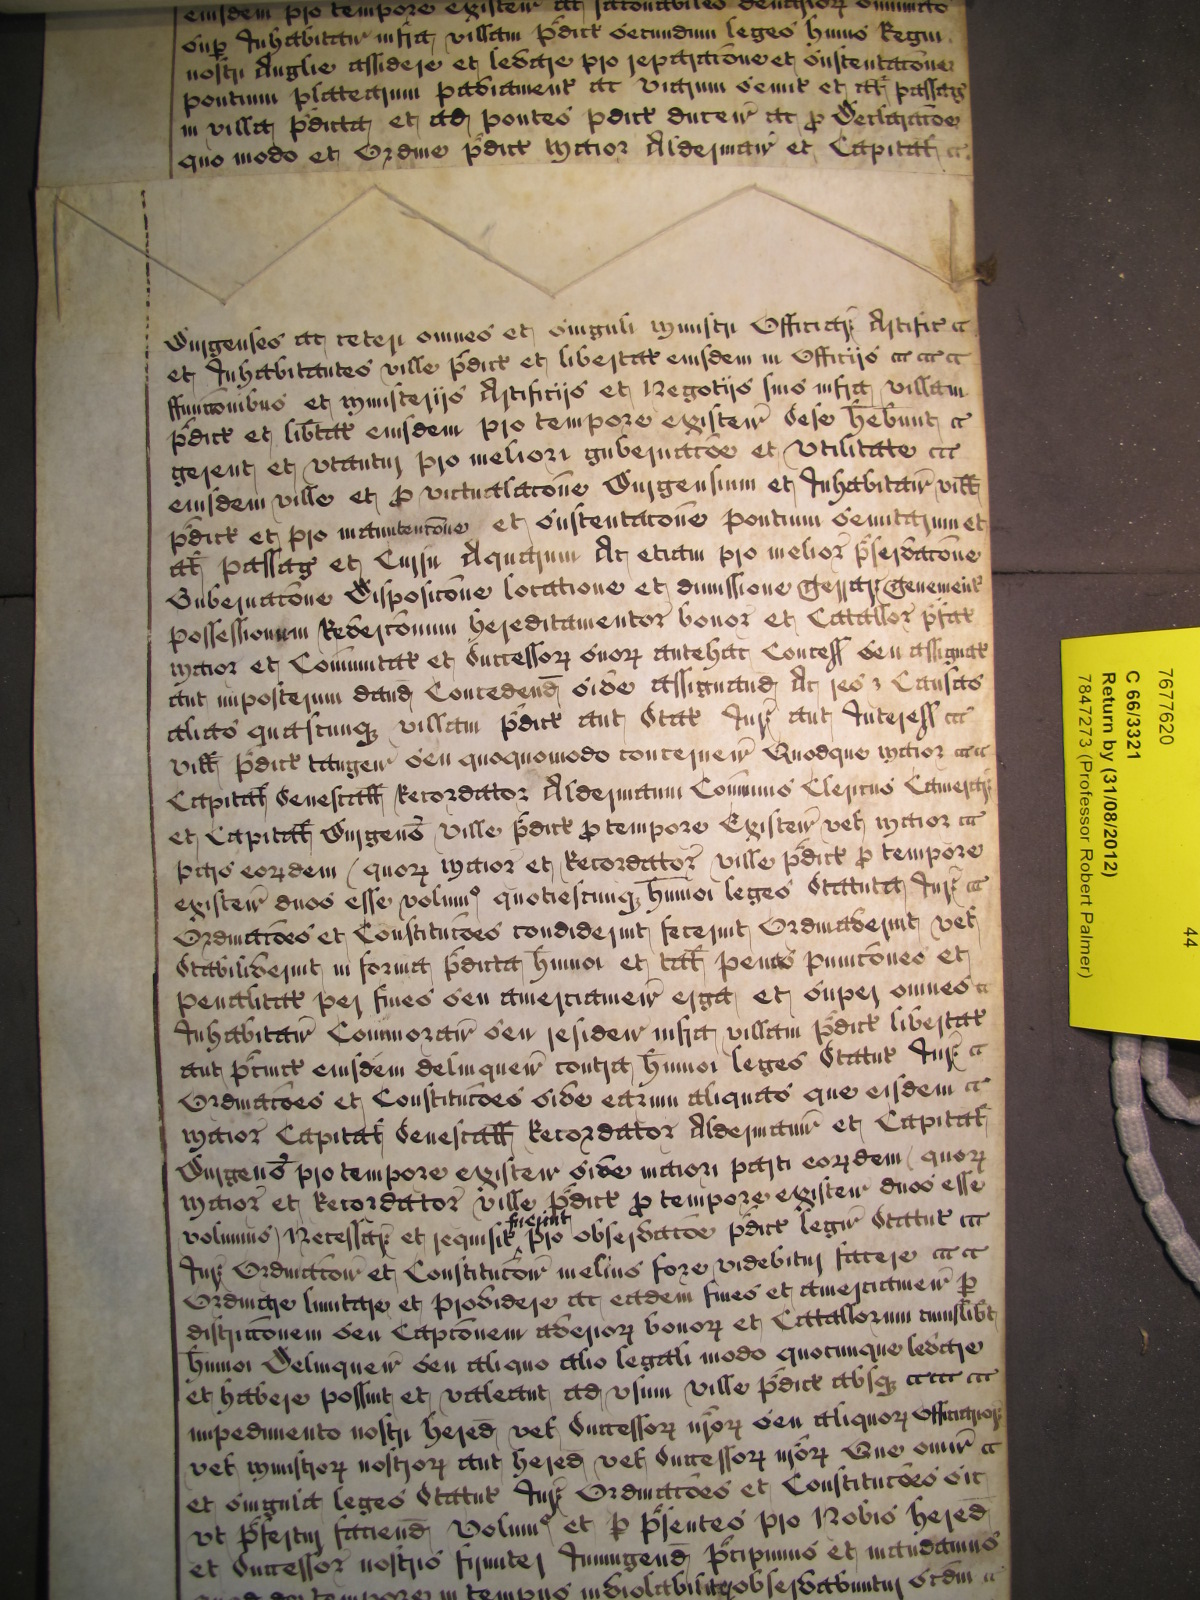 eiusdem pro tempore existen ac racionabiles denarior summas
sup Inhabitan infra villam pdict secundum leges huius Regni
nostri Anglie assidere et levare pro reparacione et sustentacone
pontium platearum paviament ac viarum semit et al passag
in villa pdicta et ad pontes pdict ducen ac p Declaracoe
quo modo et Ordine pdict Maior Aldermani et Capital
Burgenses ac ceteri omnes et singuli Ministri Officiar Artific
et Inhabitantes ville pdict et libertat eiusdem in Officijs
ffunccionibus et Ministerijs Artificijs et Negotijs suis infra villam
pdict et libtat eiusdem pro tempore existen sese hebunt
gerent et utantur pro meliori gubernacoe et utilitate
eiusdem ville et p victualacone Burgensium et Inhabitan vill
pdict et pro manutencone et sustentacone pontium semitarum et
al passag et Cursu Aquarum Ac etiam pro melior pservacone
Gubernacone Disposicone locatione et dimissione Terrar Tenement
possessionum Revercomum hereditamentor bonor et Catallor pfat
Maior et Comunitat et Successor suor antehac Concess seu assignat
aut imposterum dand Concedend sive assignand Ac res z Causas
alias quascunq villam pdict aut Stat Jur aut Interess
vill pdict tangen seu quoquomodo concernen Quodque Maior
Capital Senescall Recordator Aldermani Comunis Clericus Camerar
et Capital Burgens ville pdict p tempore Existen vel Maior
pars eordem quor Maior et Recordator ville pdict p tempore
existen duos esse volum quotiescunq humoi leges Statuta Jur
Ordinacoes et Constitucoes condiderint fecerint Ordinaverint vel
Stabiliverint in forma pdicta humoi et tal penas punicones et
penalitat per fines seu amerciamen erga et super omnes
Inhabitan Comoran seu residen infra villam pdict libertat
aut pcinct eiusdem delinquen contra humoi leges Statut Jur
Ordinacoes et Constitucoes sive earum aliquas que eisdem
Maior Capital Senescall Recordator Aldermann et Capital
Burgens pro tempore existen sive maiori parti eordem quor
Maior et Recordator ville pdict p tempore existen duos esse
volumus Necessar et requisit fuerint pro observacoe pdict legin Statut
Jur Ordinacoin et Constitucoin melius fore videbitur facere
Ordinare limitare et providere ac eadem fines et amerciamen p
districcionem seu Capconem averior bonor et Cattallorum cuiuslibt
humoi Delinquen seu aliquo alio legali modo quocunque levare
et habere possint et valeant ad usum ville pdict absq
impedimento nostri hered vel Successor nror seu aliquor Officiarior
vel Ministror nostror aut hered vel Successor nror Que omn
et singula leges Statut Jur Ordinacoes et Constitucoes sic
ut pfertur faciend Volum et p psentes pro Nobis hered
et Successor nostris firmiter Iniungend pcipimus et mandamus
tempore in tempus inviolabiliter observabuntur scdm
7677620
C 66/3321
Return by (31/08/2012)
7847273 (Professor Robert Palmer)
44